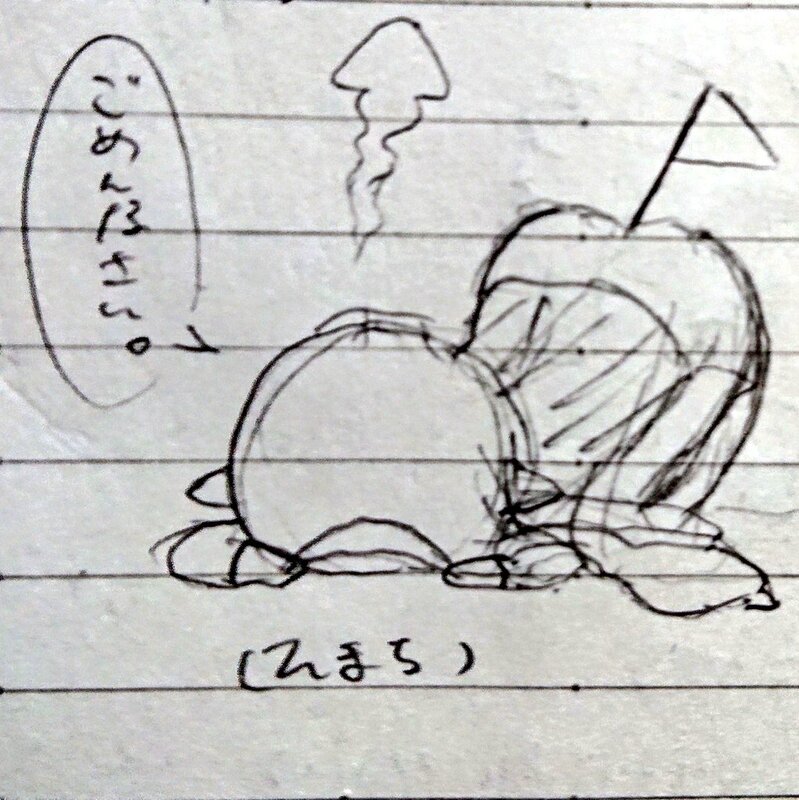 ごめんなさい。
(てんまち)